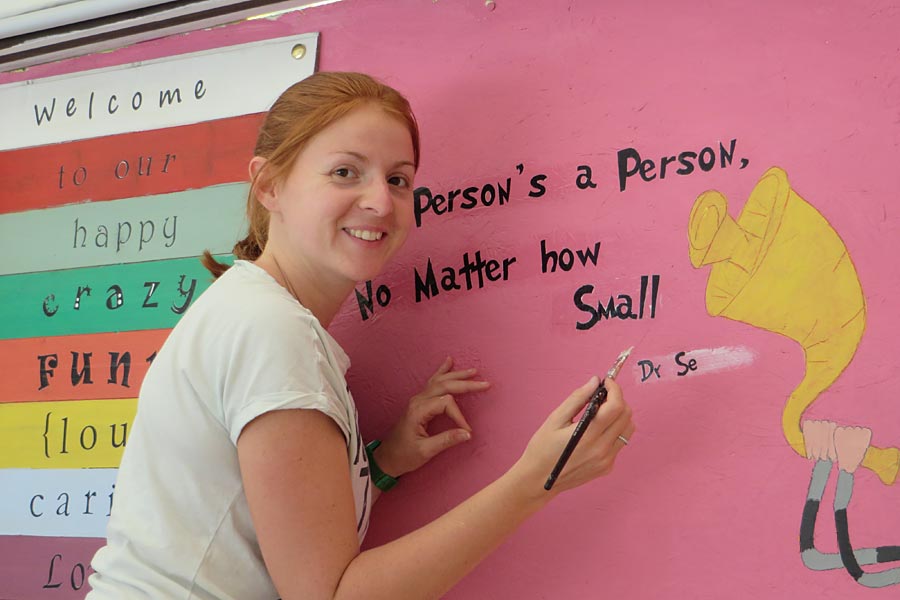 Welcome
to our
happy
crazy
FUN
{lou
cari
Lo
Person's a Person,
No Matter how
Small
Dr Se